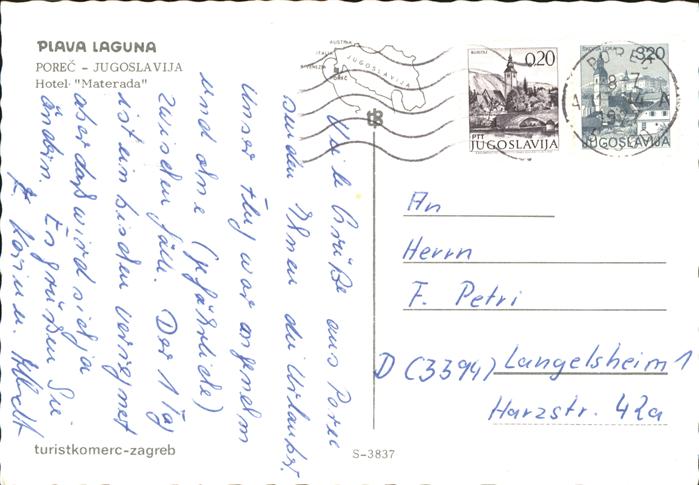 PLAVA LAGUNA
POREČ - JUGOSLAVIJA
Hotel "Materada"
AUSTRIA
ITALIA
VENEZIA
POREČ
JUGOSLAVIJA
0,20
PTT
JUGOSLAVIJA
3,20
JUGOSLAVIJA
POREČ
Viele Grüße aus Poreč
senden Ihnen die Urlauber.
Unser Flug war angenehm
und ohne (gefährliche)
Zwischenfälle. Der 1 Tag
ist ein bischen verregnet
aber das wird sich ja
ändern. Es grüßen Sie
Albert
An
Herrn
F. Petri
D (3394) Langelsheim 1
Harzstr. 42a
turistkomerc-zagreb
S-3837